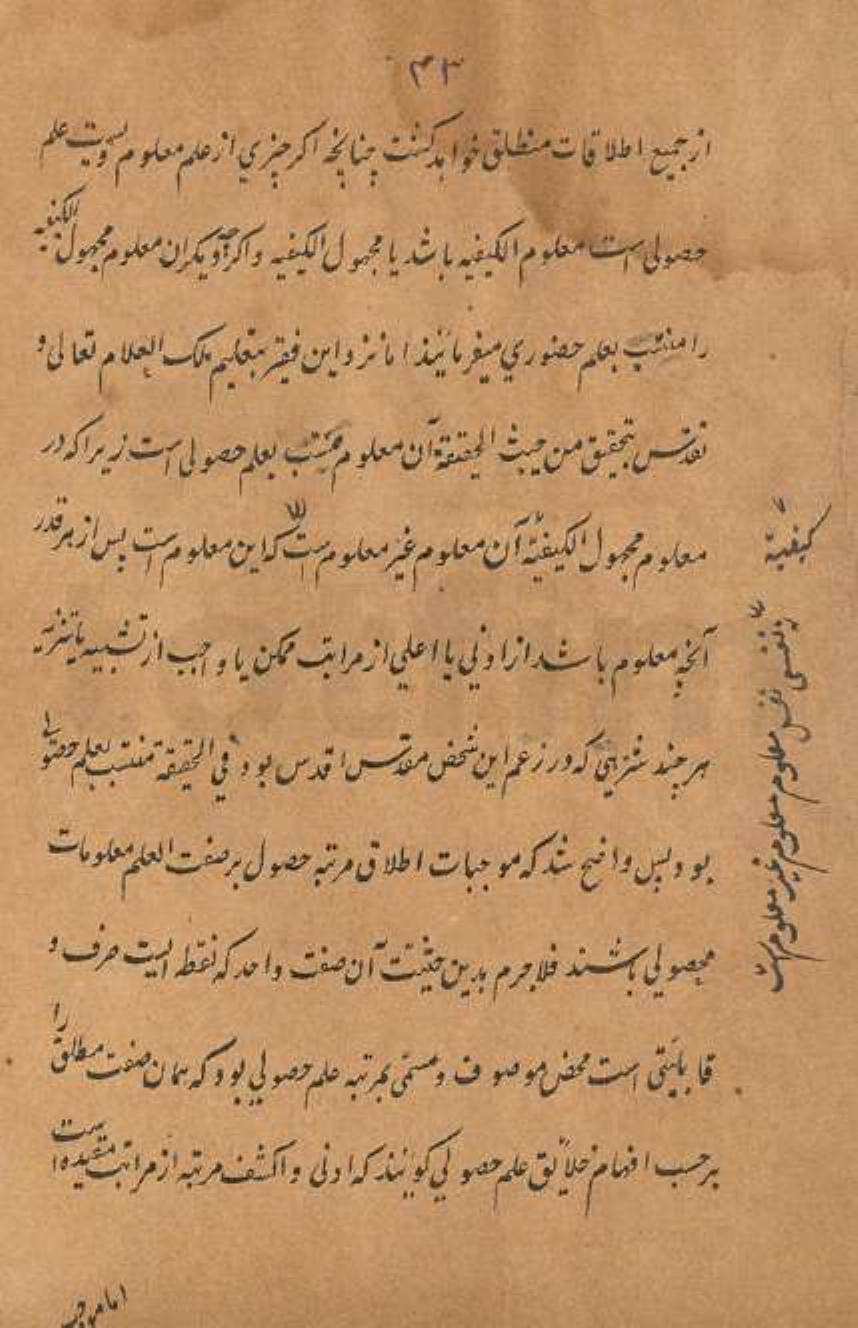 ۴۳
از جمیع اطلاقات منطلق خواهد کشت چنانچه اکر چیزي از علم معلوم علم
حصولی است معلوم الکیفیه باشد یا مجهول الکیفیه و اکرچه دیکران معلوم مجهول الکیفیه
را منتسب بعلم حضوري میفرمائیند اما نزد این فقیر بتعلیم ملک العلام تعالی و
تقدس بتحقیق من حیث الحقیقة آن معلوم منتسب بعلم حصولی است زیرا که در
معلوم مجهول الکیفیة آن معلوم غیر معلوم است که این معلوم است پس از هر قدر
آنچه معلوم باشد از ادني یا اعلي از مراتب ممکن یا واجب از تشبیه یا تنزیه
هر چند تنزیهي که در زعم این شخص مقدس اقدس بود في الحقیقة منتسب بعلم حصولي
بود پس واضح شد که موجبات اطلاق مرتبه حصول بر صفت العلم معلومات
محصولي باشند فلاجرم بدین حیثیت آن صفت واحد که نقطه ایست صرف و
قابلیتی است محض موصوف و مسمی بمرتبه علم حصولي بود که همان صفت مطلق را
بر حسب افهام خلائق علم حصولي کویند که ادنی و اکشف مرتبه از مراتب مقیده است
کیفیة
نفس معلوم معلوم غیر معلوم است
اما